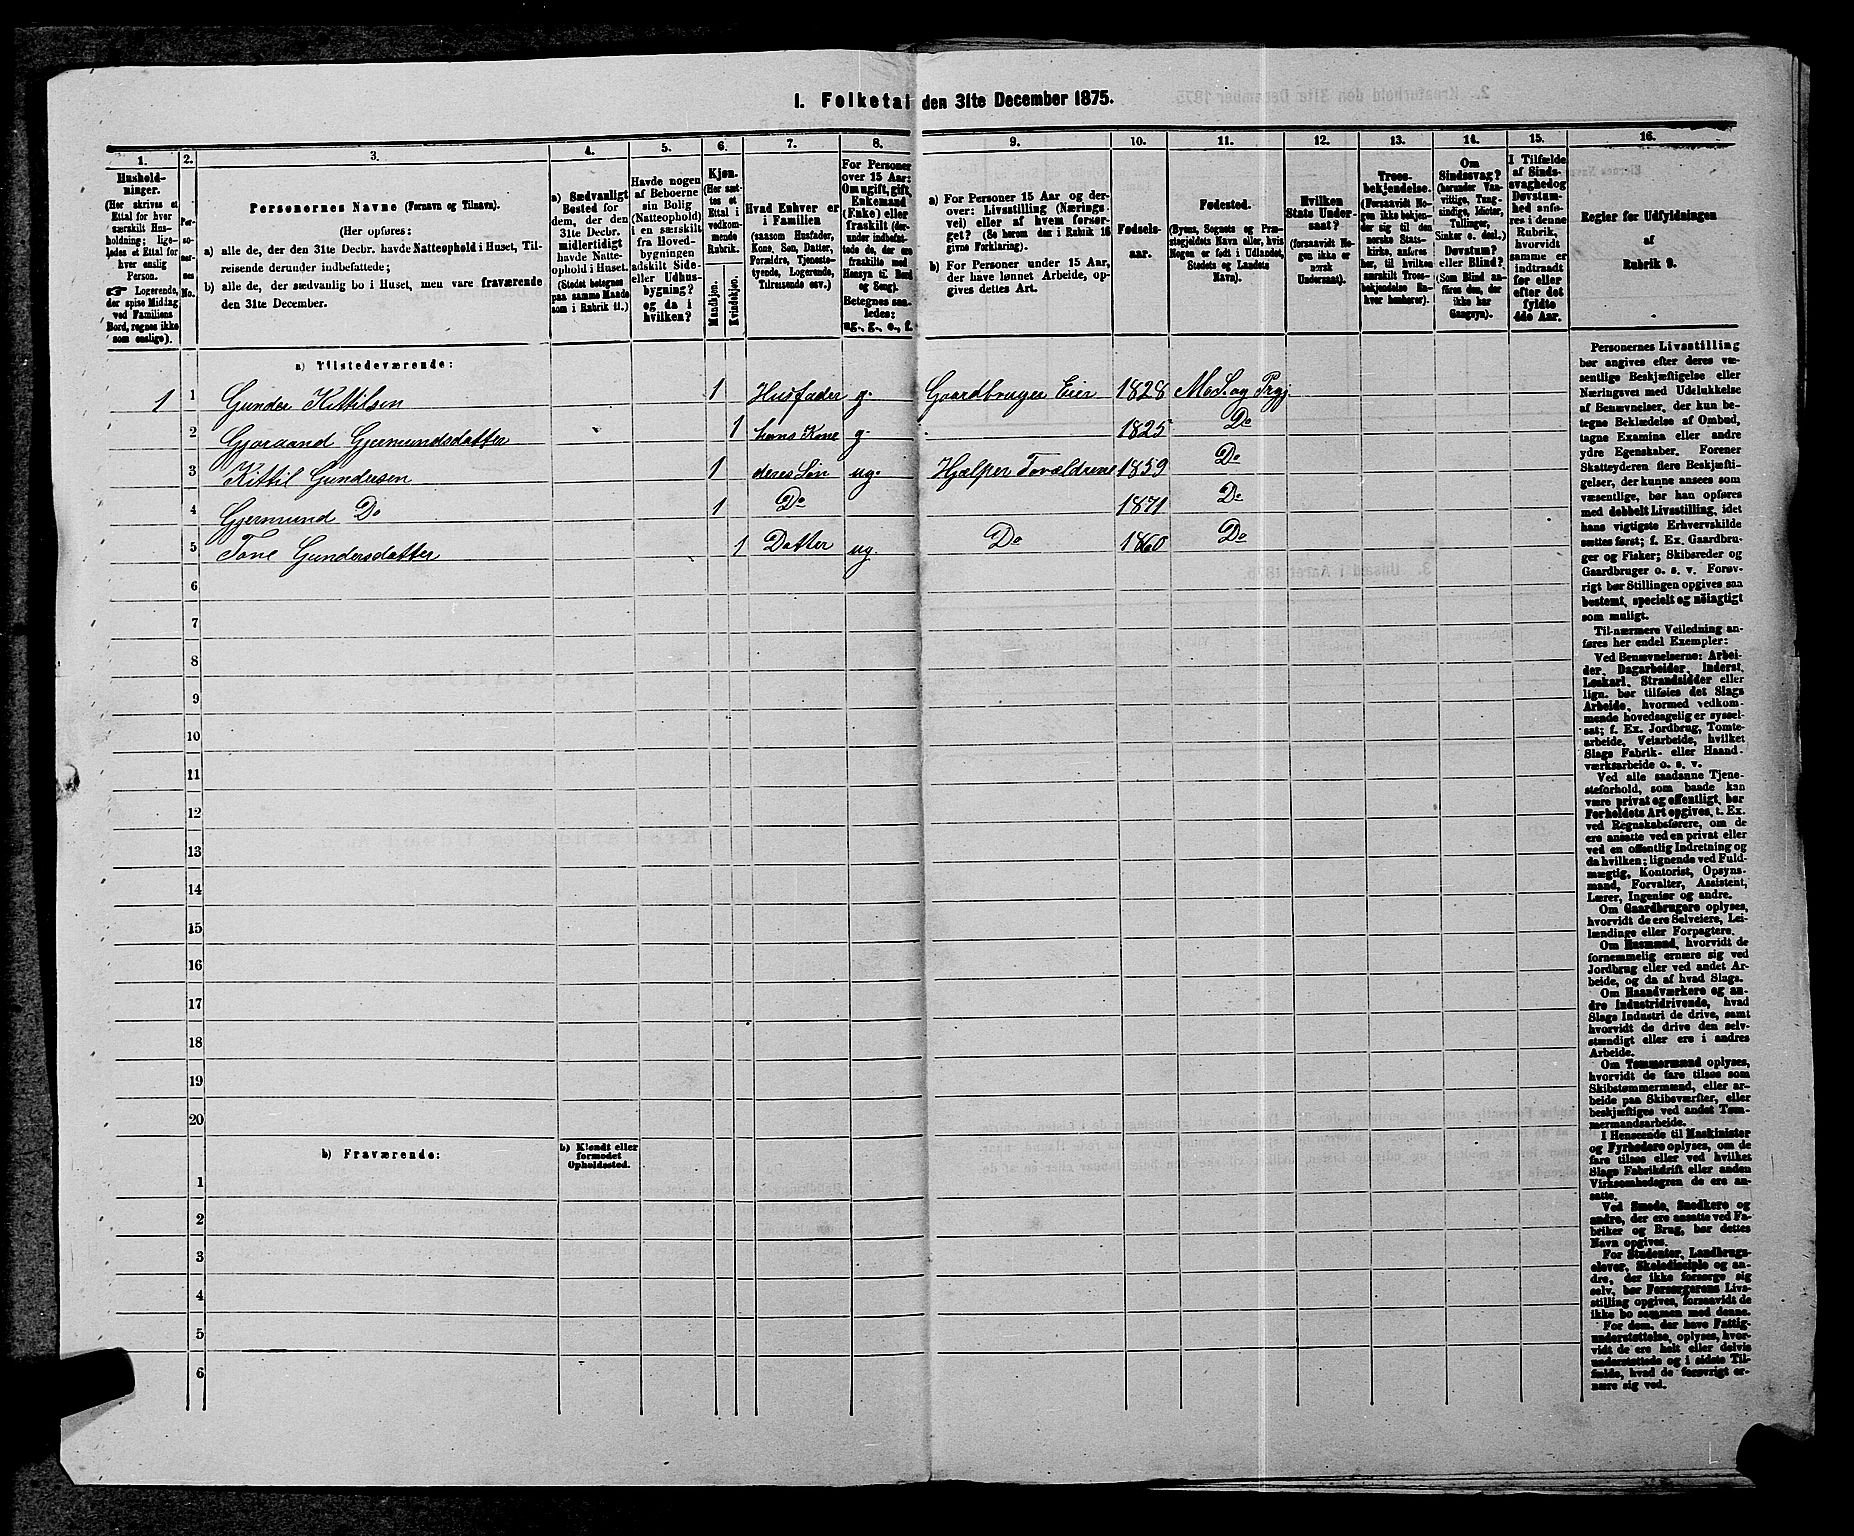 1. Folketal den 31te December 1875.
1. 2. 3. 4. 5. 6. 7. 8. 9. 10. 11. 12. 13. 14. 15. 16.
Hushold-
ninger.
(Her skrives et
Ettal for hver
særskilt Hus-
holdning; lige-
ledes et Ettal for
hver enslig
Person.
☛ Logerende,
der spise Middag
ved Familiens
Bord, regnes ikke
som enslige).
Per-
so-
ner-
nes
No.
Personernes Navne (Fornavn og Tilnavn).
(Her opføres:
a) alle de, der den 31te Decbr. havde Natteophold i Huset, Til-
reisende derunder indbefattede;
b) alle de, der sædvanlig bo i Huset, men vare fraværende
den 31te December.
a) Sædvanligt
Bosted for
dem, der den
31te Decbr.
midlertidigt
havde Natte-
ophold i Huset.
(Stedet betegnes
paa samme Maade
som i Rubrik 11.)
Havde nogen
af Beboerne
sin Bolig
(Natteophold)
i en særskilt
fra Hoved-
bygningen
adskilt Side-
eller Udhus-
bygning?
og da i
hvilken?
Kjøn.
(Her sæt-
tes et
Ettal i
vedkom-
mende
Rubrik.
Mandkjøn.
Kvindekjøn.
Hvad Enhver er
i Familien
(saasom Husfader,
Kone, Søn, Datter,
Forældre, Tjeneste-
tyende, Logerende,
Tilreisende osv.)
For Personer
over 15 Aar:
Om ugift, gift,
Enkemand
(Enke) eller
fraskilt (der-
under indbefat-
tede de, der ere
fraskilte med
Hensyn til Bord
og Seng).
Betegnes saa-
ledes:
ug., g., e., f.
a) For Personer 15 Aar og der-
over: Livsstilling (Nærings-
vei) eller af hvem forsør-
get? (Se herom den i Rubrik 16
givne Forklaring).
b) For Personer under 15 Aar,
der have lønnet Arbeide, op-
gives dettes Art.
Fødsels-
aar.
Fødested.
(Byens, Sognets og Præ-
stegjeldets Navn eller, hvis
Nogen er født i Udlandet,
Stedets og Landets
Navn).
Hvilken
Stats Under-
saat?
(forsaavidt No-
gen ikke er
norsk
Undersaat).
Troes-
bekjendelse.
(Forsaavidt No-
gen ikke bekjen-
der sig til den
norske Stats-
kirke, anføres
her, til hvilken
særskilt Troes-
bekjendelse En-
hver henhører).
Om
Sindssvag?
(herunder Van-
vittige, Tung-
sindige, Idioter,
Sinker o. desl.)
Døvstum?
eller Blind?
(Som Blind an-
føres den, der
ikke har
Gangsyn).
I Tilfælde
af Sinds-
svaghed og
Døvstum-
hed anfø-
res i denne
Rubrik,
hvorvidt
samme er
indtraadt
før eller
efter det
fyldte
4de Aar.
Regler for Udfyldningen
af
Rubrik 9.
a) Tilstedeværende:
1 1 Gunder Kittilsen 1 Husfader g. Gaardbruger Eier 1828 Mo S. og Prgj.
2 Gjoraand Gjermundsdatter 1 hans Kone g. 1825 Do
3 Kittil Gundersen 1 deres Søn ug. Hjælper Forældrene 1859 Do
4 Gjermund Do 1 Do 1871 Do
5 Tone Gundersdatter 1 Datter ug. Do 1860 Do
6
7
8
9
10
11
12
13
14
15
16
17
18
19
20
b) Fraværende:
b) Kjendt eller
formodet
Opholdssted.
1
2
3
4
5
6
Personernes Livsstilling
bør angives efter deres væ-
sentlige Beskjæftigelse eller
Næringsvei med Udelukkelse
af Benævnelser, der kun be-
tegne Beklædelse af Ombud,
tagne Examina eller andre
ydre Egenskaber. Forener
Skatteyderen flere Beskjæfti-
gelser, der kunne ansees som
væsentlige, bør han opføres
med dobbelt Livsstilling, idet
hans vigtigste Erhvervskilde
sættes først; f. Ex. Gaardbru-
ger og Fisker; Skibsreder og
Gaardbruger o. s. v. Forøv-
rigt bør Stillingen opgives saa
bestemt, specielt og nøiagtigt
som muligt.
Til nærmere Veiledning an-
føres her endel Exempler:
Ved Benævnelserne: Arbei-
der, Dagarbeider, Inderst,
Løskarl, Strandsidder eller
lign. bør tilføies det Slags
Arbeide, hvormed vedkom-
mende hovedsagelig er syssel-
sat; f. Ex. Jordbrug, Tomte-
arbeide, Veiarbeide, hvilket
Slags Fabrik- eller Haand-
værksarbeide o. s. v.
Ved alle saadanne Tjene-
steforhold, som baade kan
være privat og offentligt, bør
Forholdets Art opgives, t. Ex.
ved Regnskabsførere, om de
ere ansatte ved en privat eller
ved en offentlig Indretning og
da hvilken; lignende ved Fuld-
mægtig, Kontorist, Opsyns-
mand, Forvalter, Assistent,
Lærer, Ingeniør og andre.
Om Gaardbrugere oplyses,
hvorvidt de ere Selveiere, Lei-
lændinge eller Forpagtere.
Om Husmænd, hvorvidt de
fornemmelig ernære sig ved
Jordbrug eller ved andet Ar-
beide, og da af hvad Slags.
Om Haandværkere og an-
dre Industridrivende, hvad
Slags Industri de drive, samt
hvorvidt de drive den selv-
stændigt eller ere i andres
Arbeide.
Om Tømmermænd oplyses,
hvorvidt de fare tilsøs som
Skibstømmermænd, eller ar-
beide paa Skibsværfter, eller
beskjæftiges ved andet Tøm-
mermandsarbeide.
I Henseende til Maskinister
og Fyrbødere oplyses, om de
fare tilsøs eller ved hvilket
Slags Fabrikdrift eller anden
Virksomhedsgren de ere an-
satte.
Ved Smede, Snedkere og
andre, der ere ansatte ved Fa-
briker og Brug, bør dettes
Navn opgives.
For Studenter, Landbrugs-
elever, Skoledisciple og an-
dre, der ikke forsørge sig
selv, bør Forsørgerens Livs-
stilling opgives, forsaavidt de
ikke bo sammen med denne.
For dem, der have Fattig-
understøttelse, oplyses, hvor-
vidt de ere helt eller delvis
understøttede og i sidste Til-
fælde, hvad de forøvrigt er-
nære sig ved.